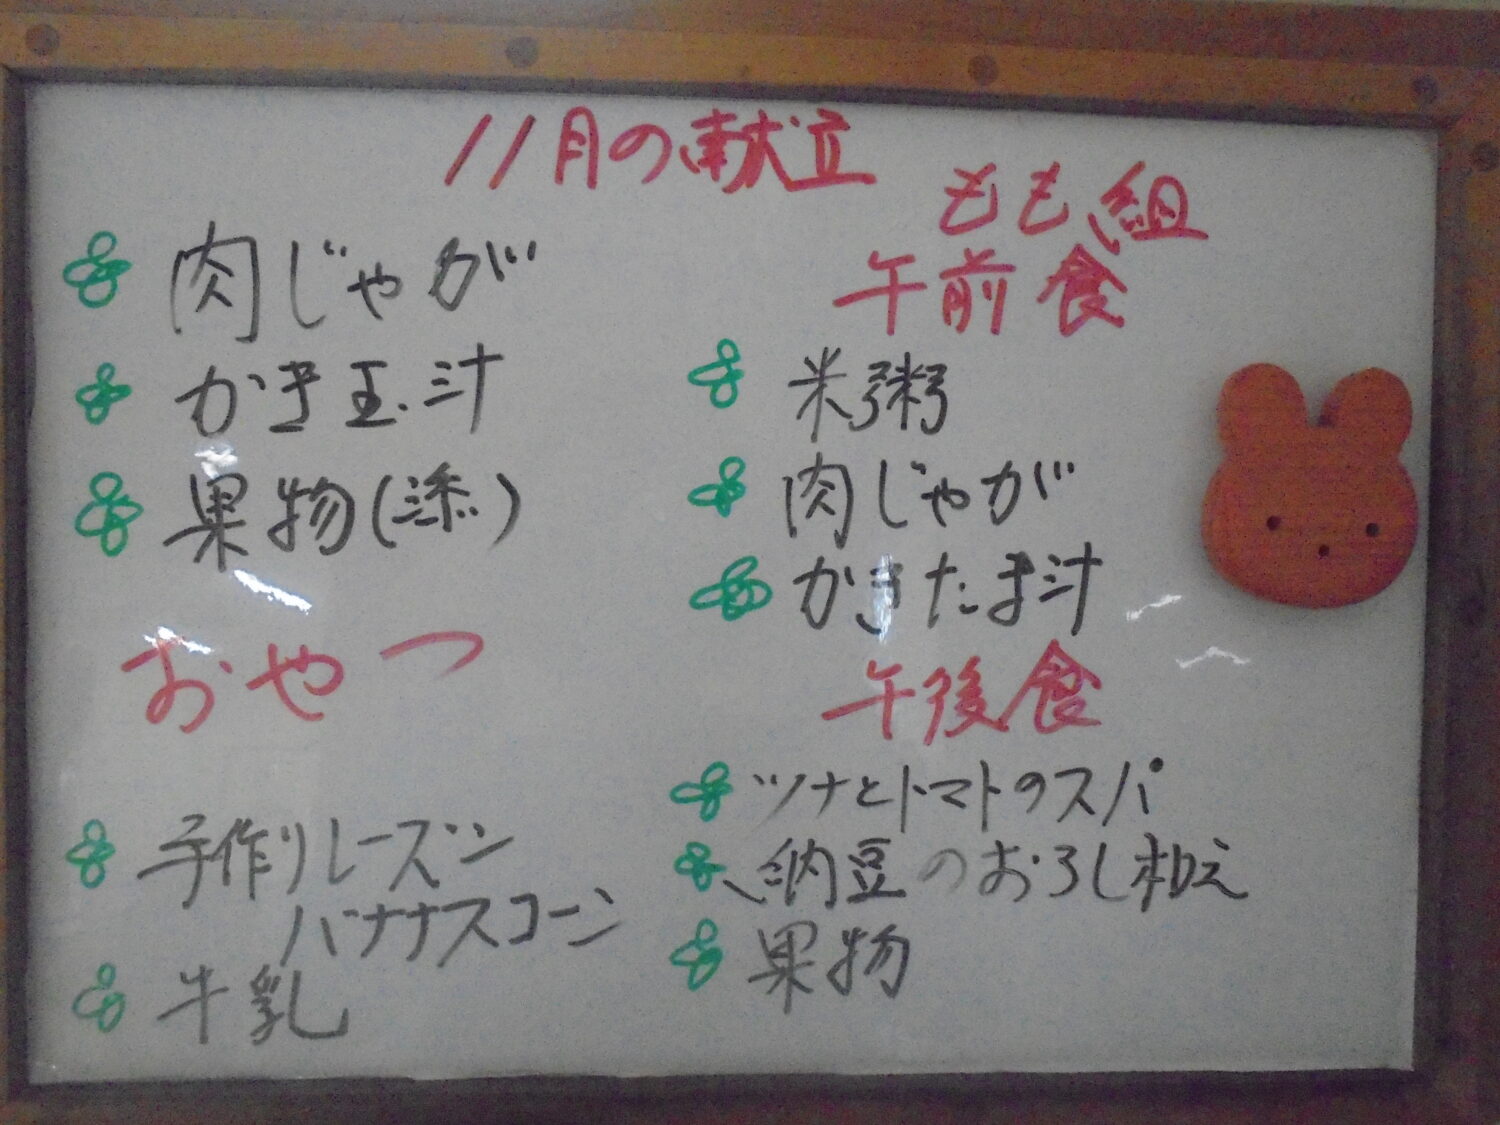 11月の献立
肉じゃが
かき玉汁
果物(添)
おやつ
手作りレーズン
バナナスコーン
牛乳
もも組
午前食
米粥
肉じゃが
かきたま汁
午後食
ツナとトマトのスパ
納豆のおろし和え
果物